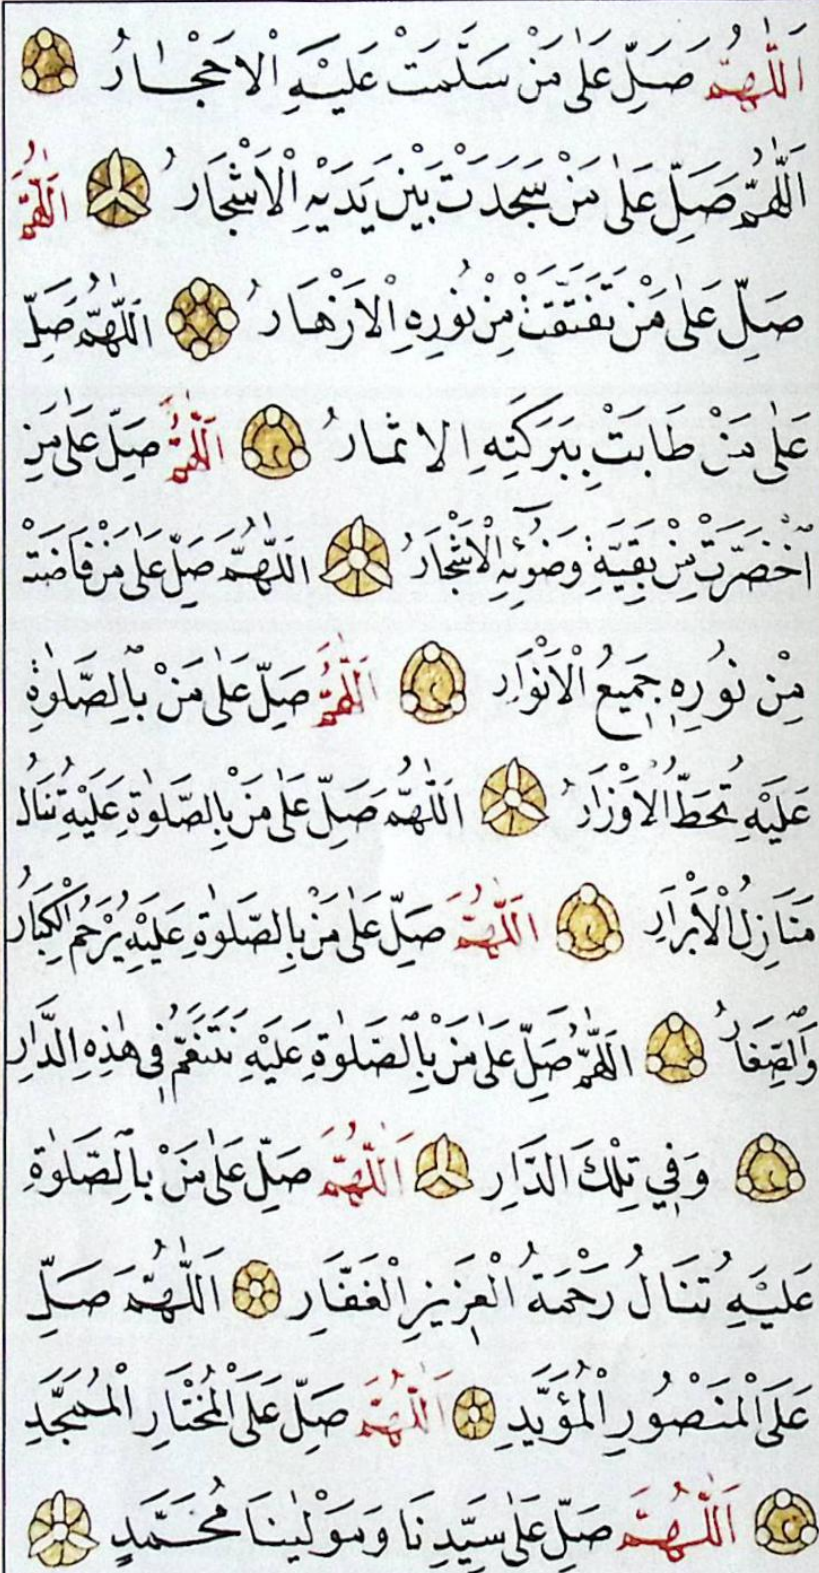 اَللّٰهُمَّ صَلِّ عَلٰى مَنْ سَلَّمَتْ عَلَيْهِ الْاَحْجَارُ
اَللّٰهُمَّ صَلِّ عَلٰى مَنْ سَجَدَتْ بَيْنَ يَدَيْهِ الْاَشْجَارُ اَللّٰهُمَّ
صَلِّ عَلٰى مَنْ تَفَتَّقَتْ مِنْ نُورِهِ الْاَزْهَارُ اَللّٰهُمَّ صَلِّ
عَلٰى مَنْ طَابَتْ بِبَرَكَتِهِ الْاثمَارُ اَللّٰهُمَّ صَلِّ عَلٰى مَنِ
اخْضَرَّتْ مِنْ بَقِيَّةِ وَضُوئِهِ الْاَشْجَارُ اَللّٰهُمَّ صَلِّ عَلٰى مَنْ فَاضَتْ
مِنْ نُورِهِ جَمِيعُ الْاَنْوَارِ اَللّٰهُمَّ صَلِّ عَلٰى مَنْ بِالصَّلٰوةِ
عَلَيْهِ تُحَطُّ الْاَوْزَارُ اَللّٰهُمَّ صَلِّ عَلٰى مَنْ بِالصَّلٰوةِ عَلَيْهِ تُنَالُ
مَنَازِلُ الْاَبْرَارِ اَللّٰهُمَّ صَلِّ عَلٰى مَنْ بِالصَّلٰوةِ عَلَيْهِ يُرْحَمُ الْكِبَارُ
وَالصِّغَارُ اَللّٰهُمَّ صَلِّ عَلٰى مَنْ بِالصَّلٰوةِ عَلَيْهِ نَتَنَعَّمُ فِي هٰذِهِ الدَّارِ
وَفِي تِلْكَ الدَّارِ اَللّٰهُمَّ صَلِّ عَلٰى مَنْ بِالصَّلٰوةِ
عَلَيْهِ تُنَالُ رَحْمَةُ الْعَزِيزِ الْغَفَّارِ اَللّٰهُمَّ صَلِّ
عَلَى الْمَنْصُورِ الْمُؤَيَّدِ اَللّٰهُمَّ صَلِّ عَلَى الْمُخْتَارِ الْمُمَجَّدِ
اَللّٰهُمَّ صَلِّ عَلٰى سَيِّدِنَا وَمَوْلٰينَا مُحَمَّدٍ